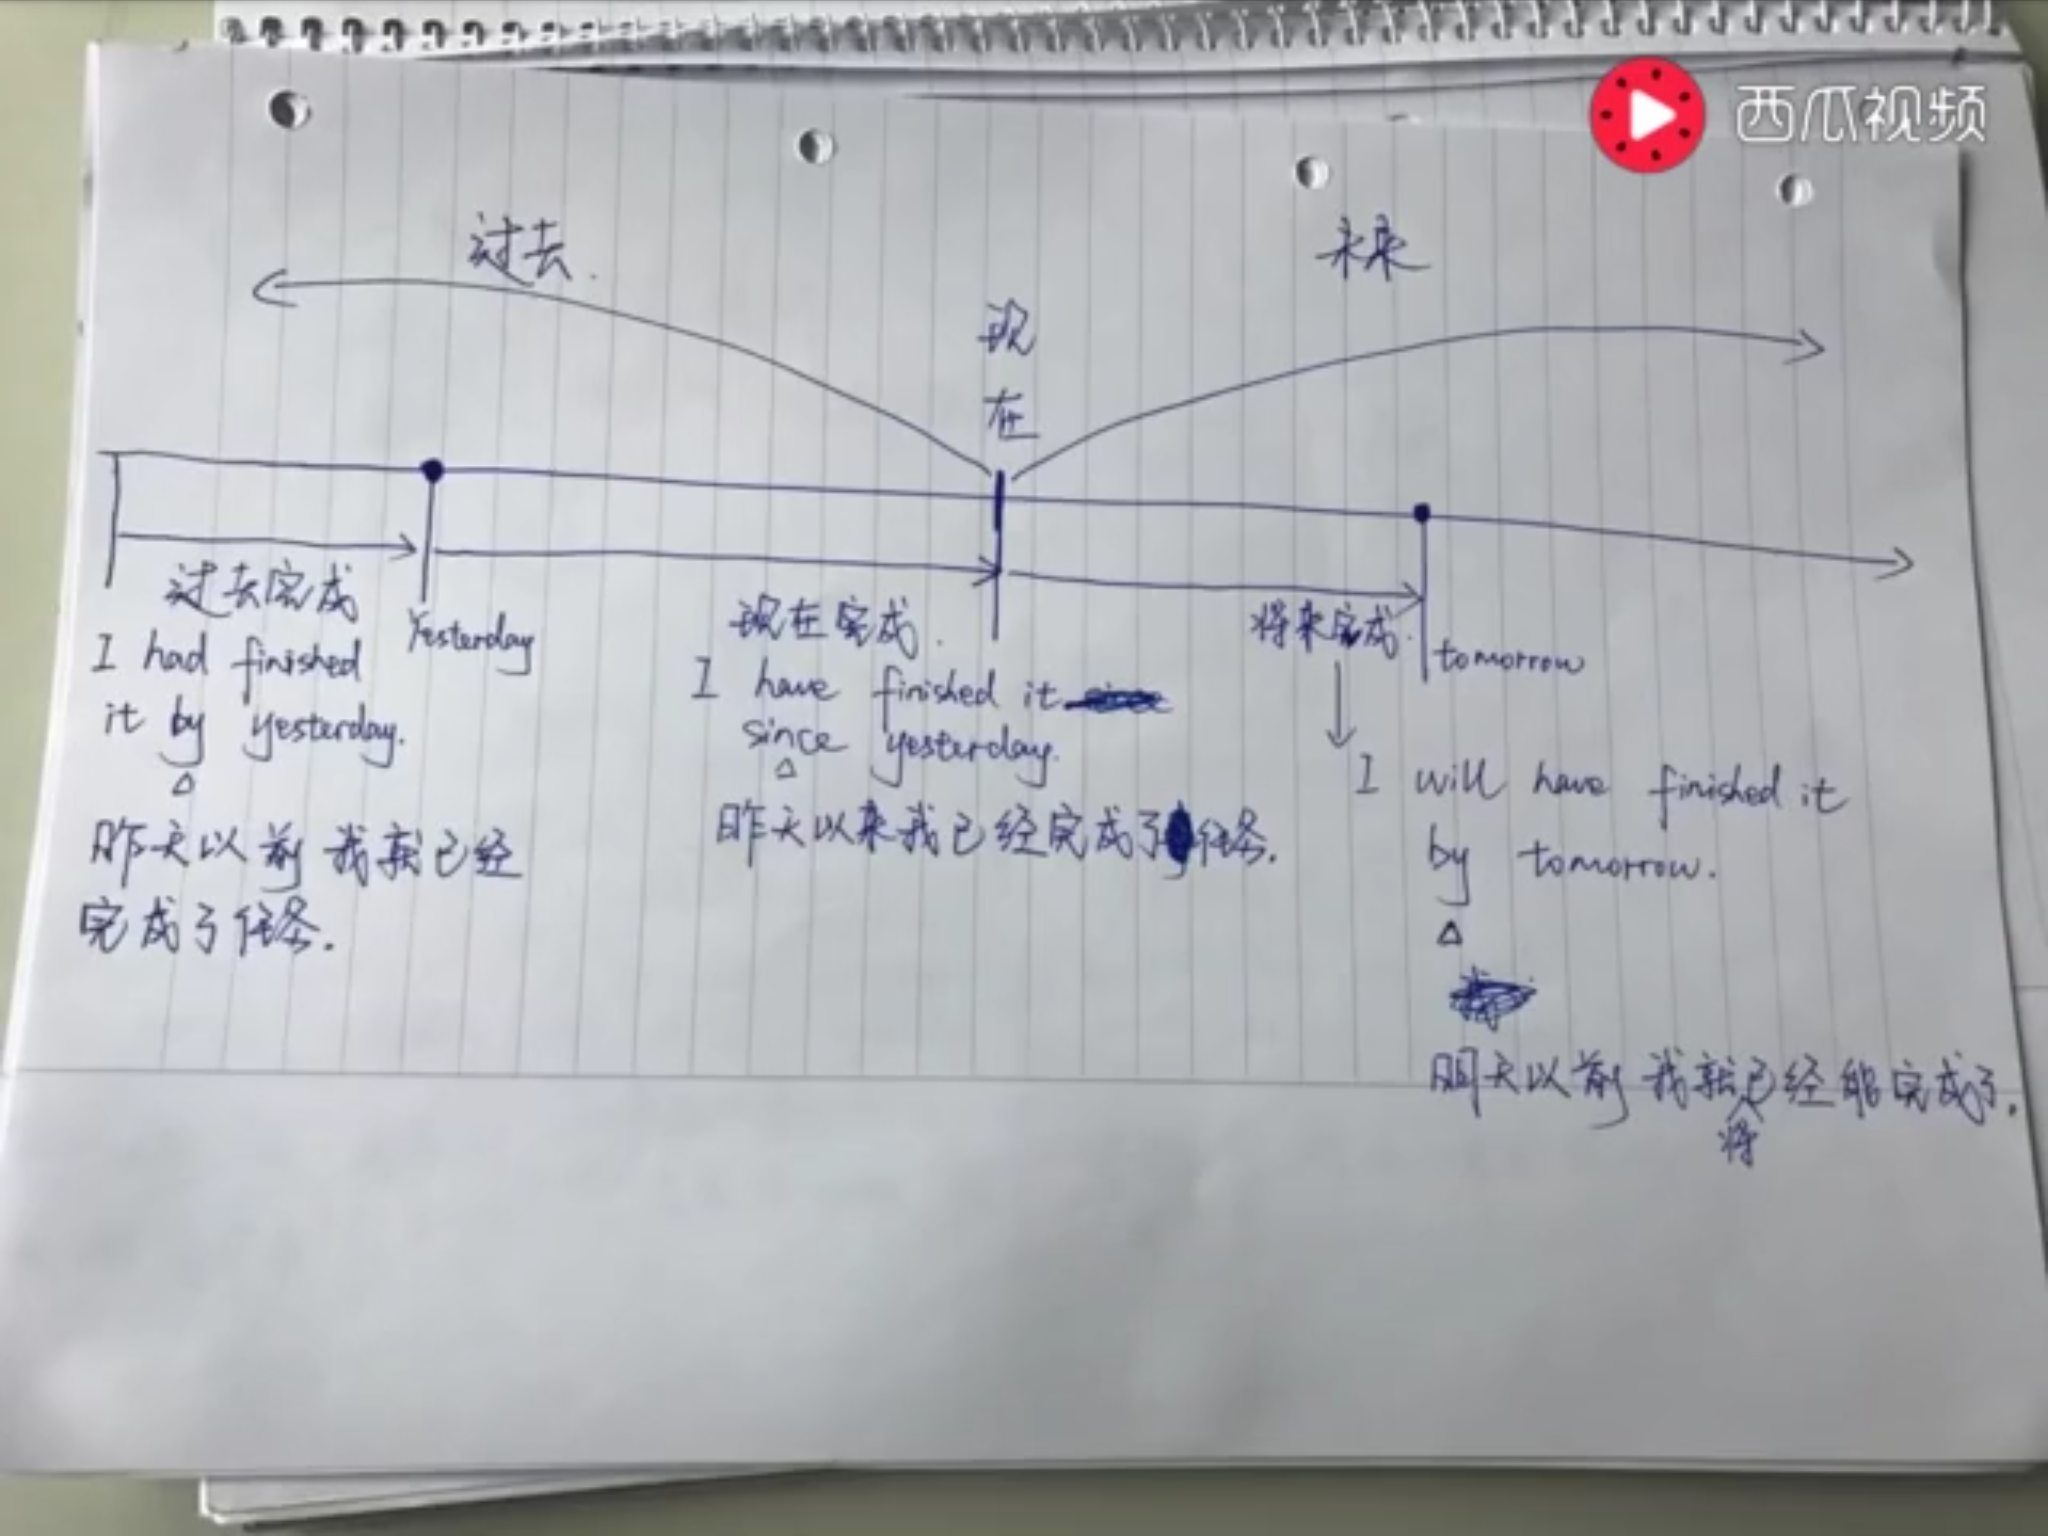 西瓜视频
过去.
未来
现
在
过去完成
Yesterday
I had finished
it by yesterday.
昨天以前我就已经
完成了任务.
现在完成.
I have finished it
since yesterday.
昨天以来我已经完成了任务.
将来完成.
tomorrow
I will have finished it
by tomorrow.
明天以前我就已经能完成了.
将